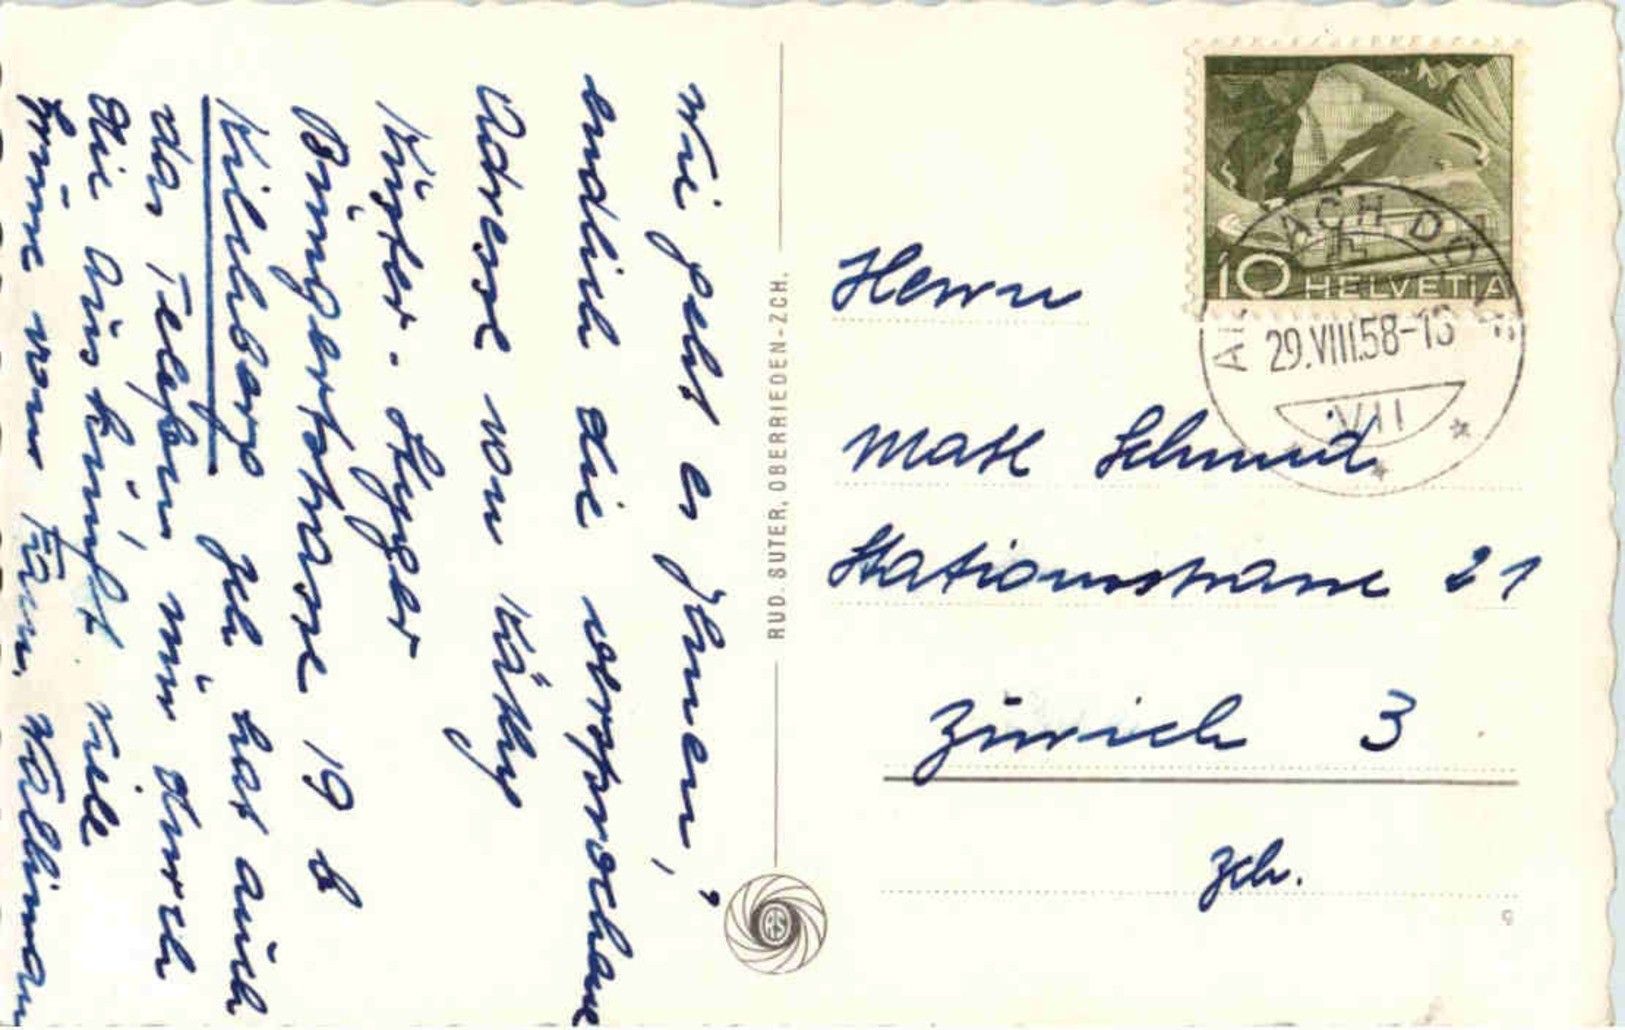 Wie geht es Ihnen,?
endlich die versprochene
Adresse von Käthy
Küster-Hyger
Büngertstrasse 19 b
Kilchberg Ich hat auch
das Telefon nür durch
die Auskünft. Viele
Grüsse von Fam. Wällimann
RUD. SUTER, OBERRIEDEN-ZCH.
RS
10 HELVETIA
29.VIII.58-
VII
Herrn
Max Schmid
Stationsstrasse 21
Zürich 3
Zch.
9